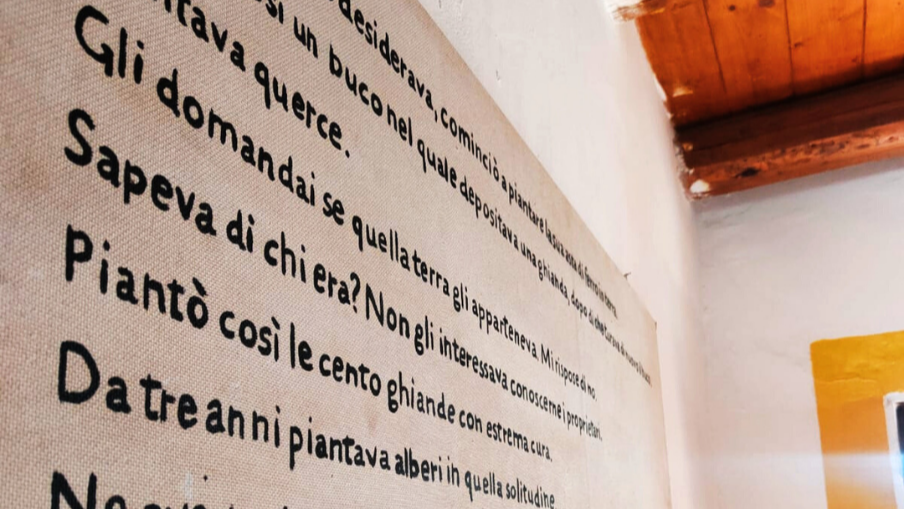 desiderava, cominciò a piantare la sua asta di ferro in terra.
un buco nel quale depositava una ghianda, dopo di che turava di nuovo il buco;
piantava querce.
Gli domandai se quella terra gli apparteneva. Mi rispose di no.
Sapeva di chi era? Non gli interessava conoscerne i proprietari.
Piantò così le cento ghiande con estrema cura.
Da tre anni piantava alberi in quella solitudine